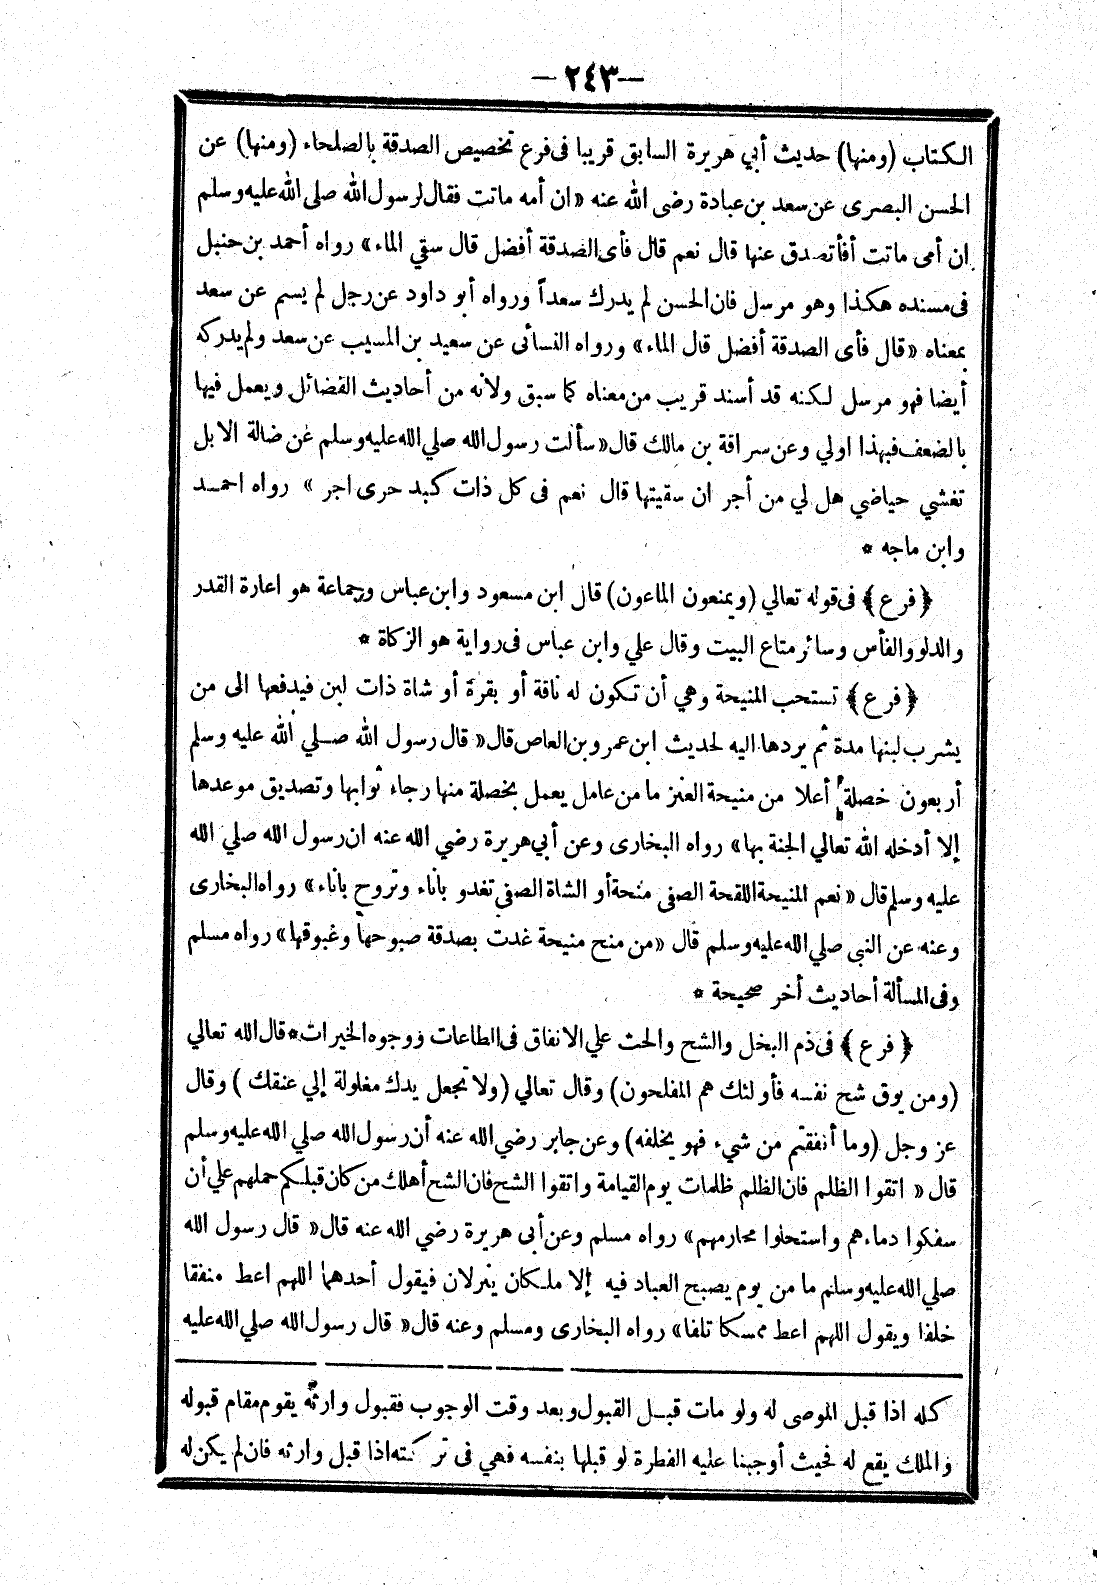 — ٢٤٣ —
الكتاب (ومنها) حديث أبي هريرة السابق قريبا فى فرع تخصيص الصدقة بالصلحاء (ومنها) عن
الحسن البصرى عن سعد بن عبادة رضى الله عنه « ان أمه ماتت فقال لرسول الله صلى الله عليه وسلم
ان أمى ماتت أفأتصدق عنها قال نعم قال فأى الصدقة أفضل قال سقي الماء » رواه أحمد بن حنبل
فى مسنده هكذا وهو مرسل فان الحسن لم يدرك سعداً ورواه أبو داود عن رجل لم يسم عن سعد
بمعناه « قال فأى الصدقة أفضل قال الماء » ورواه النسائى عن سعيد بن المسيب عن سعد ولم يدركه
أيضا فهو مرسل لكنه قد أسند قريب من معناه كما سبق ولانه من أحاديث الفضائل ويعمل فيها
بالضعف فبهذا اولي وعن سراقة بن مالك قال « سألت رسول الله صلي الله عليه وسلم عن ضالة الابل
تغشي حياضي هل لي من أجر ان سقيتها قال نعم فى كل ذات كبد حرى اجر » رواه احمد
وابن ماجه *
﴿ فرع ﴾ فى قوله تعالي (ويمنعون الماعون) قال ابن مسعود وابن عباس وجماعة هو اعارة القدر
والدلو والفأس وسائر متاع البيت وقال علي وابن عباس فى رواية هو الزكاة *
﴿ فرع ﴾ تستحب المنيحة وهي أن تكون له ناقة أو بقرة أو شاة ذات لبن فيدفعها الى من
يشرب لبنها مدة ثم يردها اليه لحديث ابن عمرو بن العاص قال « قال رسول الله صلي الله عليه وسلم
أربعون خصلة أعلا من منيحة العنز ما من عامل يعمل بخصلة منها رجاء ثوابها وتصديق موعدها
إلا أدخله الله تعالي الجنة بها » رواه البخارى وعن أبي هريرة رضي الله عنه ان رسول الله صلي الله
عليه وسلم قال « نعم المنيحة اللقحة الصفي منحة أو الشاة الصفي تغدو باناء وتروح باناء » رواه البخارى
وعنه عن النبى صلي الله عليه وسلم قال « من منح منيحة غدت بصدقة صبوحها وغبوقها » رواه مسلم
وفى المسألة أحاديث أخر صحيحة *
﴿ فرع ﴾ فى ذم البخل والشح والحث علي الانفاق فى الطاعات ووجوه الخيرات * قال الله تعالي
(ومن يوق شح نفسه فأولئك هم المفلحون) وقال تعالي (ولا تجعل يدك مغلولة إلي عنقك ) وقال
عز وجل (وما أنفقتم من شيء فهو يخلفه) وعن جابر رضي الله عنه أن رسول الله صلي الله عليه وسلم
قال « اتقوا الظلم فان الظلم ظلمات يوم القيامة واتقوا الشح فان الشح أهلك من كان قبلكم حملهم علي أن
سفكوا دماءهم واستحلوا محارمهم » رواه مسلم وعن أبى هريرة رضي الله عنه قال « قال رسول الله
صلي الله عليه وسلم ما من يوم يصبح العباد فيه إلا ملكان ينزلان فيقول أحدهما اللهم اعط منفقا
خلفا ويقول اللهم اعط ممسكا تلفا » رواه البخارى ومسلم وعنه قال « قال رسول الله صلي الله عليه
كله اذا قبل الموصى له ولو مات قبل القبول وبعد وقت الوجوب فقبول وارثه يقوم مقام قبوله
والملك يقع له فحيث أوجبنا عليه الفطرة لو قبلها بنفسه فهي فى تركته اذا قبل وارثه فان لم يكن له